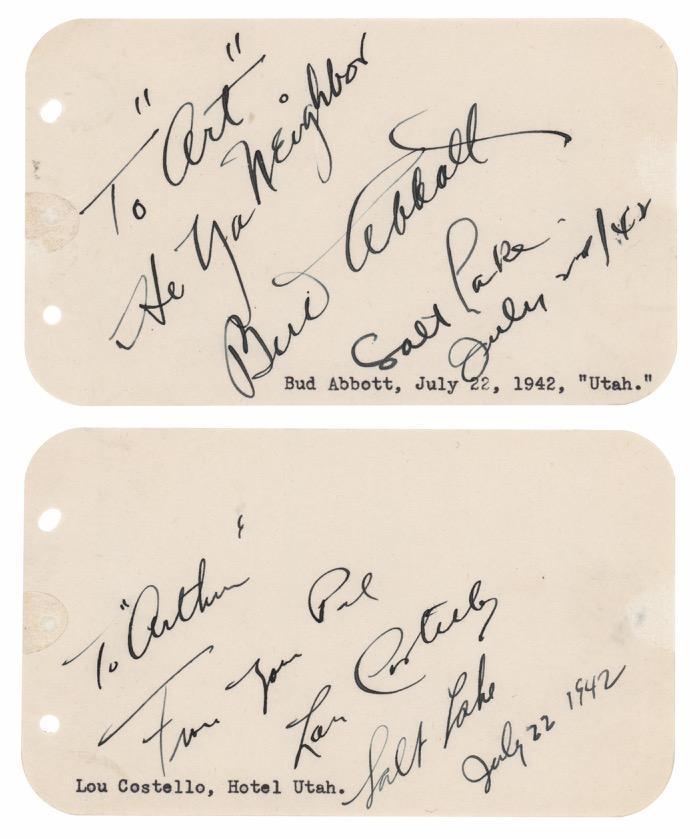 To "Art"
He Ya Neighbor
Bud Abbott
Salt Lake
July 22/42
Bud Abbott, July 22, 1942, "Utah."
To "Arthur"
From Your Pal
Lou Costello
Salt Lake
July 22 1942
Lou Costello, Hotel Utah.